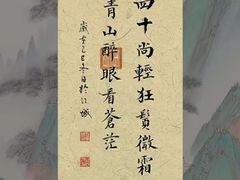 四十尚輕狂鬢微霜
青山醉眼看蒼茫
歲乙巳日於江城